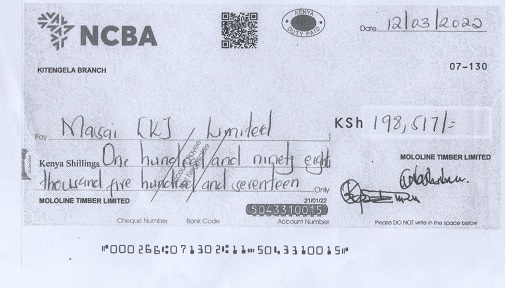 NCBA
KENYA
DUTY PAID
Date 12/03/2022
KITENGELA BRANCH
07-130
Pay Masai [K] Limited
KSh 198,517/=
Kenya Shillings One hundred and ninety eight
thousand five hundred and seventeen Only
MOLOLINE TIMBER LIMITED
MOLOLINE TIMBER LIMITED
21/01/22
5043310015
Cheque Number Bank Code Account Number
Please DO NOT write in the space below
⑈000266⑆07130211⑈5043310015⑈